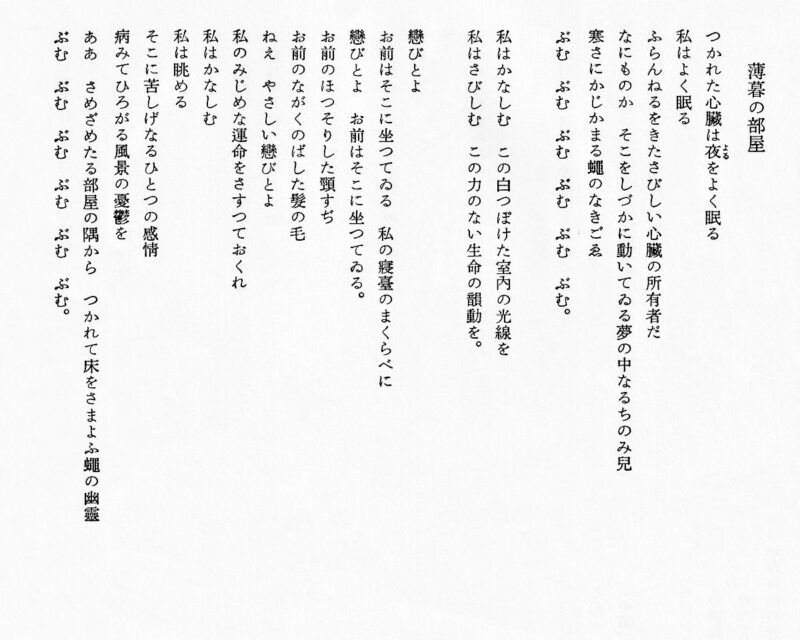 薄暮の部屋
つかれた心臓は夜をよく眠る
よる
私はよく眠る
ふらんねるをきたさびしい心臓の所有者だ
なにものか　そこをしづかに動いてゐる夢の中なるちのみ兒
寒さにかじかまる蠅のなきごゑ
ぶむ　ぶむ　ぶむ　ぶむ　ぶむ　ぶむ。
私はかなしむ　この白つぽけた室內の光線を
私はさびしむ　この力のない生命の韻動を。
戀びとよ
お前はそこに坐つてゐる　私の寢臺のまくらべに
戀びとよ　お前はそこに坐つてゐる。
お前のほつそりした頸すぢ
お前のながくのばした髮の毛
ねえ　やさしい戀びとよ
私のみじめな運命をさすつておくれ
私はかなしむ
私は眺める
そこに苦しげなるひとつの感情
病みてひろがる風景の憂鬱を
ああ　さめざめたる部屋の隅から　つかれて床をさまよふ蠅の幽靈
ぶむ　ぶむ　ぶむ　ぶむ　ぶむ　ぶむ。